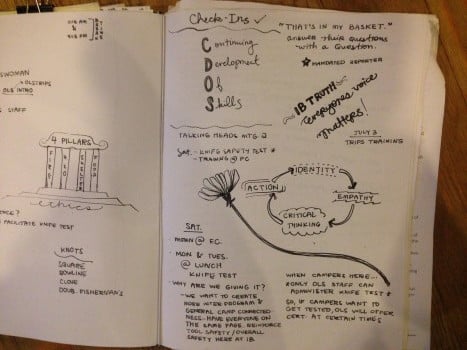 9:15 PM
SWOMAN
OLS INTRO
STAFF
4 PILLARS
FIRE
FOOD
ethics
FACILITATE KNIFE TEST
KNOTS
SQUARE
BOWLINE
CLOVE
DOUB. FISHERMAN'S
Check-Ins ✓
Continuing
Development
Of
Skills
TALKING HEADS MTG
Sat. - KNIFE SAFETY TEST *
- TRAINING @ FC
"THAT'S IN MY BASKET."
answer their questions
with a Question.
MANDATED REPORTER
IB TRUTH
everyones voice
matters!
JULY 3
TRIPS TRAINING
IDENTITY
ACTION
EMPATHY
CRITICAL
THINKING
SAT.
@ F.C.
- MON & TUES.
@ LUNCH
KNIFE TEST
- WHY ARE WE GIVING IT?
- WE WANT TO CREATE
MORE INTER PROGRAM &
GENERAL CAMP CONNECTED
NESS- HAVE EVERYONE ON
THE SAME PAGE REINFORCE
TOOL SAFETY/OVERALL
SAFETY HERE AT IB
WHEN CAMPERS HERE...
ONLY OLS STAFF CAN
ADMINISTER KNIFE TEST
SO, IF CAMPERS WANT TO
GET TESTED, OLS WILL OFFER
CERT. AT CERTAIN TIMES